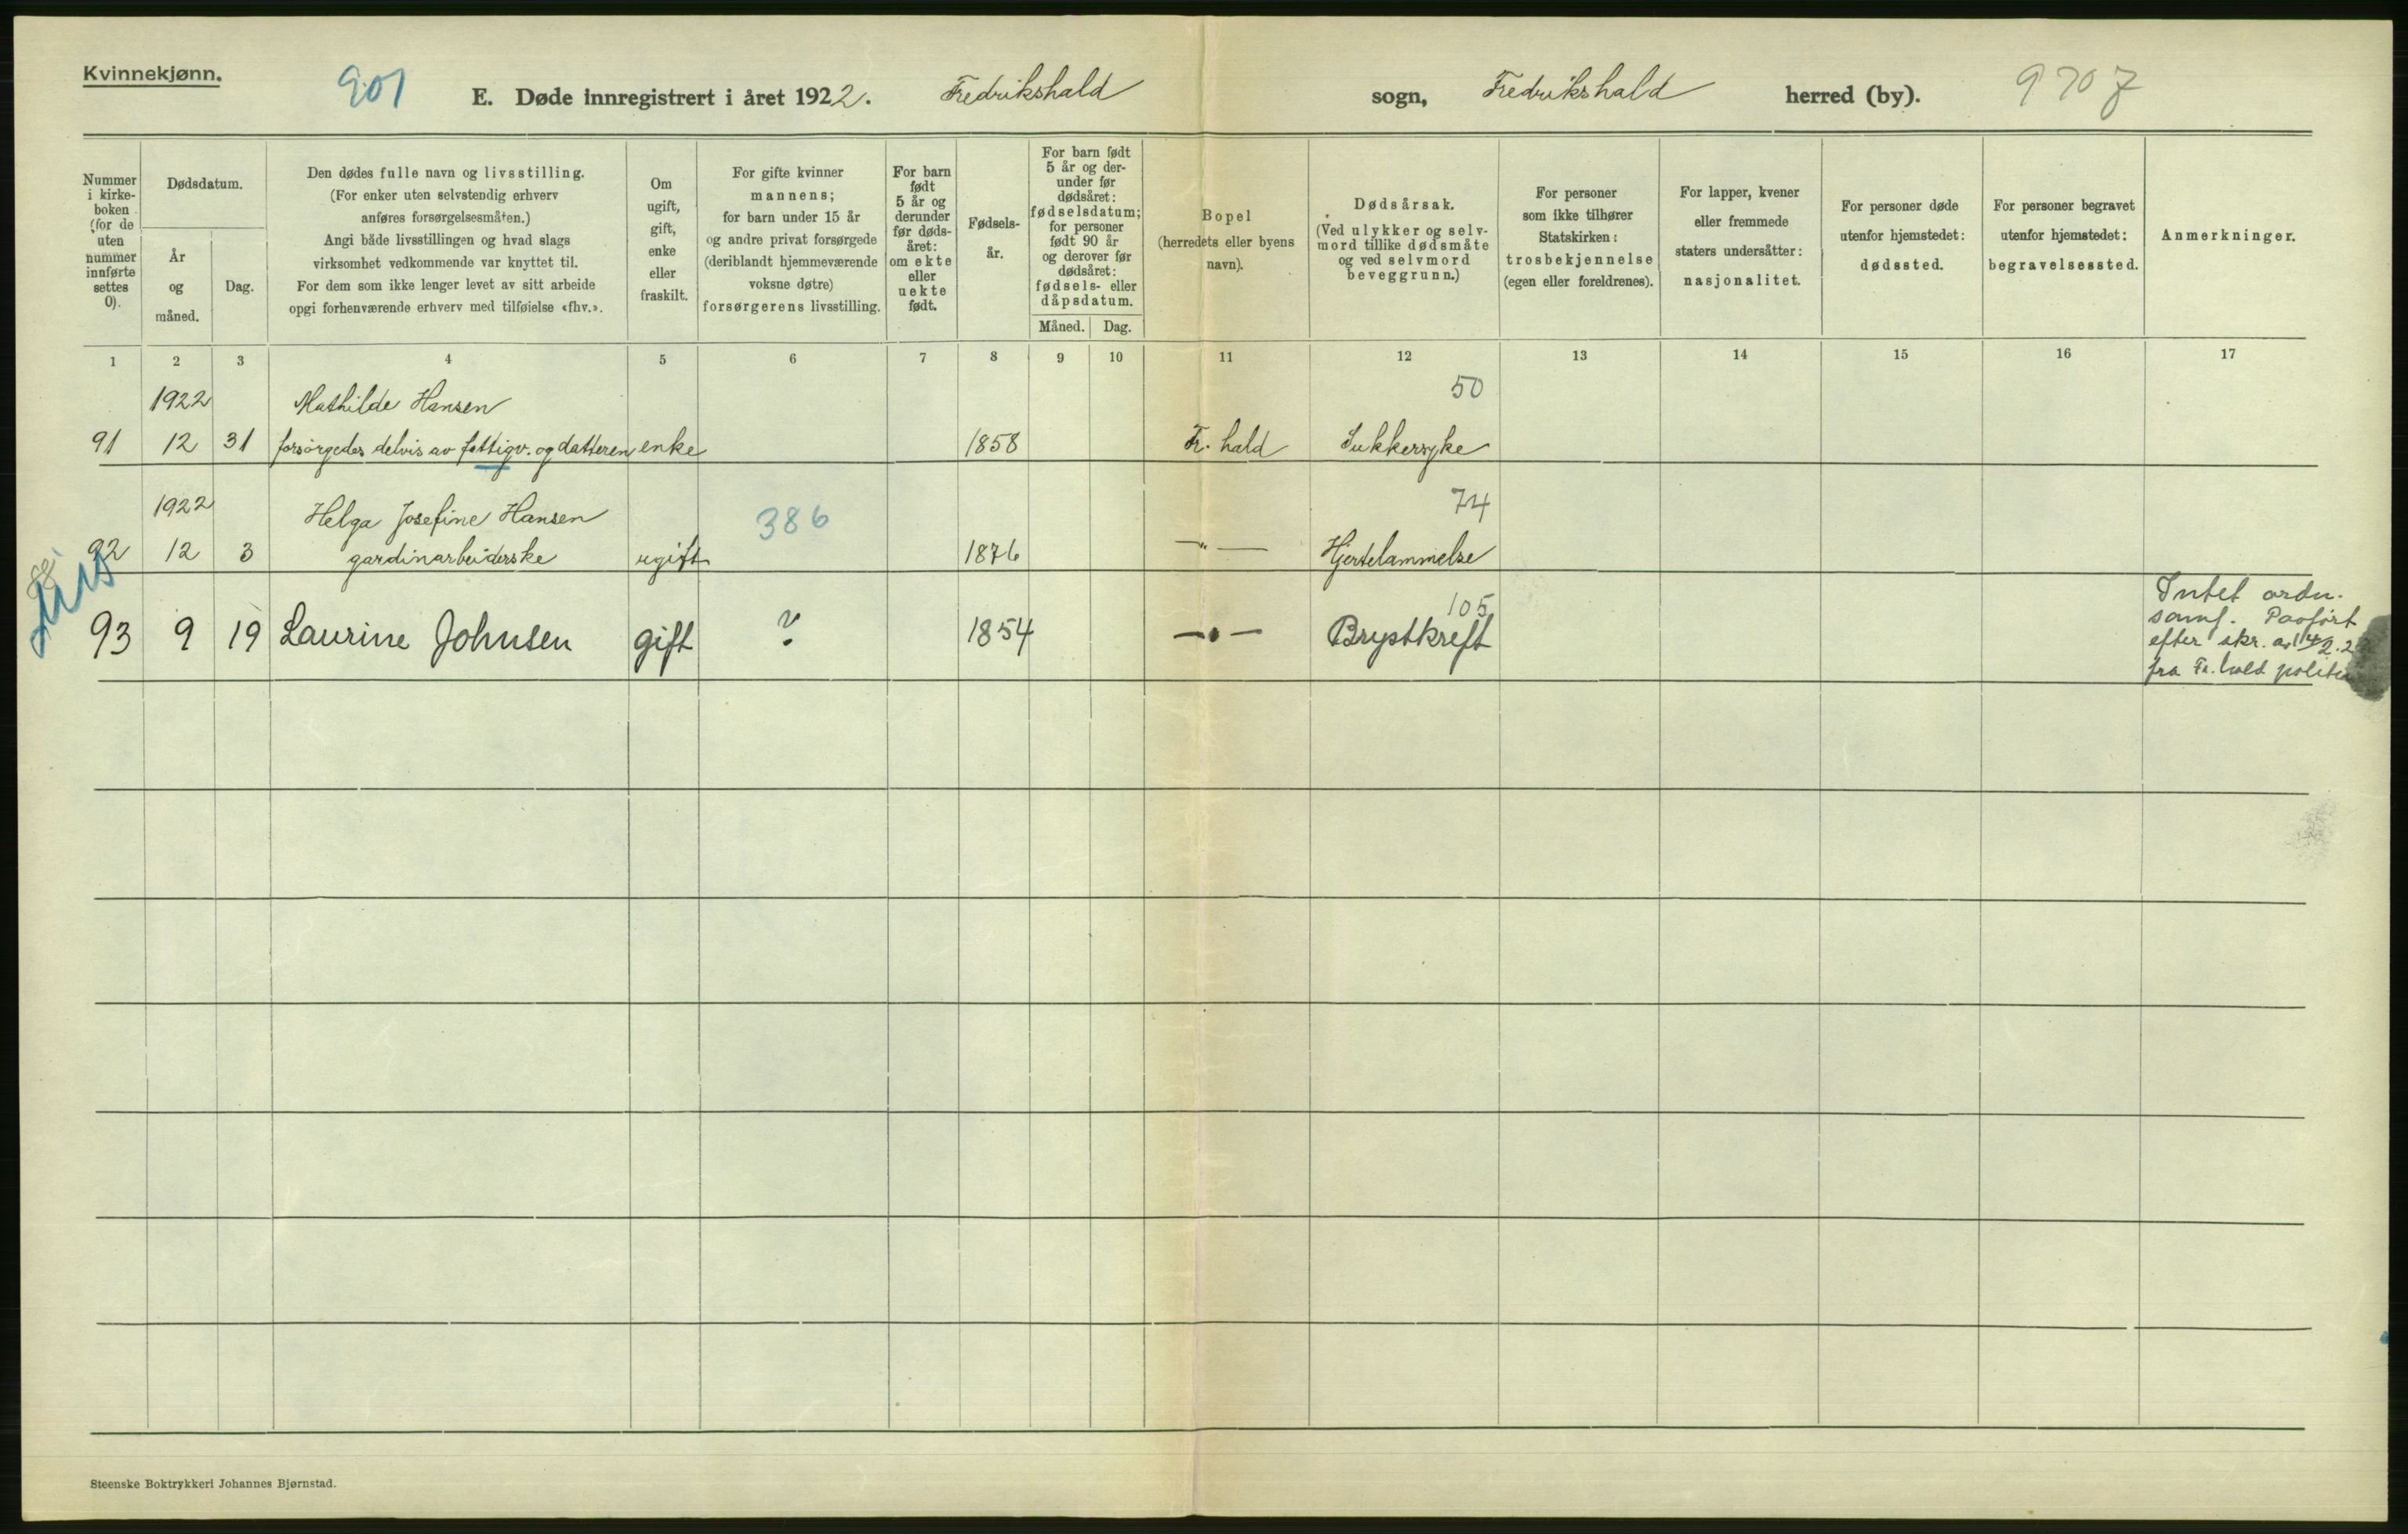 Kvinnekjønn.
901
E. Døde innregistrert i året 1922. Fredrikshald sogn, Fredrikshald herred (by). 9707
Nummer
i kirke-
boken
(for de
uten
nummer
innførte
settes
0).
Dødsdatum.
År
og
måned.
Dag.
Den dødes fulle navn og livsstilling.
(For enker uten selvstendig erhverv
anføres forsørgelsesmåten.)
Angi både livsstillingen og hvad slags
virksomhet vedkommende var knyttet til.
For dem som ikke lenger levet av sitt arbeide
opgi forhenværende erhverv med tilføielse «fhv.».
Om
ugift,
gift,
enke
eller
fraskilt.
For gifte kvinner
mannens;
for barn under 15 år
og andre privat forsørgede
(deriblandt hjemmeværende
voksne døtre)
forsørgerens livsstilling.
For barn
født
5 år og
derunder
før døds-
året:
om ekte
eller
uekte
født.
Fødsels-
år.
For barn født
5 år og der-
under før
dødsåret:
fødselsdatum;
for personer
født 90 år
og derover før
dødsåret:
fødsels- eller
dåpsdatum.
Måned. Dag.
Bopel
(herredets eller byens
navn).
Dødsårsak.
(Ved ulykker og selv-
mord tillike dødsmåte
og ved selvmord
beveggrunn.)
For personer
som ikke tilhører
Statskirken:
trosbekjennelse
(egen eller foreldrenes).
For lapper, kvener
eller fremmede
staters undersåtter:
nasjonalitet.
For personer døde
utenfor hjemstedet:
dødssted.
For personer begravet
utenfor hjemstedet:
begravelsessted.
Anmerkninger.
1 2 3 4 5 6 7 8 9 10 11 12 13 14 15 16 17
1922 Mathilde Hansen 50
91 12 31 forsörgedes delvis av fattigv. og datteren enke 1858 Fr. hald Sukkersyke
1922 Helga Josefine Hansen 386 74
92 12 3 gardinarbeiderske ugift 1876 —"— Hjertelammelse
93 9 19 Laurine Johnsen gift ? 1854 —"— Brystkreft 105
Intet ordn.
samf. Paaført
efter skr. av 14/2.2
fra Fr.hald politi
Steenske Boktrykkeri Johannes Bjørnstad.